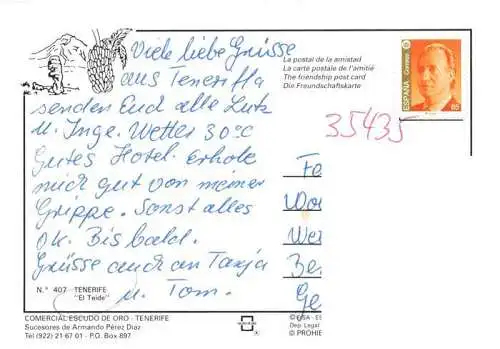 Viele liebe Grüsse
aus Teneriffa
senden Euch alle Lutz
u. Inge. Wetter 30°C
Gutes Hotel. Erhole
mich gut von meiner
Grippe. Sonst alles
OK. Bis bald.
Grüsse auch an Tanja
u. Tom.
La postal de la amistad
La carte postale de l'amitié
The friendship post card
Die Freundschaftskarte
ESPAÑA
Correos
85
35435
Fa
Wor
Wer
Ber
Ge
N.° 407 - TENERIFE
"El Teide"
COMERCIAL ESCUDO DE ORO - TENERIFE
Sucesores de Armando Pérez Diaz
Tel (922) 21 67 01 - P.O. Box 897
Dep. Legal
© PROHIE